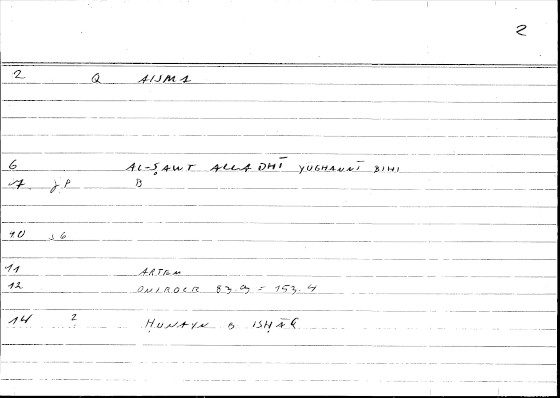 2
2 Q AISMA
6 AL-ṢAWT ALLADHĪ YUGHANNĪ BIHI
7 gP B
10 s6
11 ARTEM
12 ONIROCR 83.9 = 153.4
14 2 ḤUNAYN B ISḤĀQ